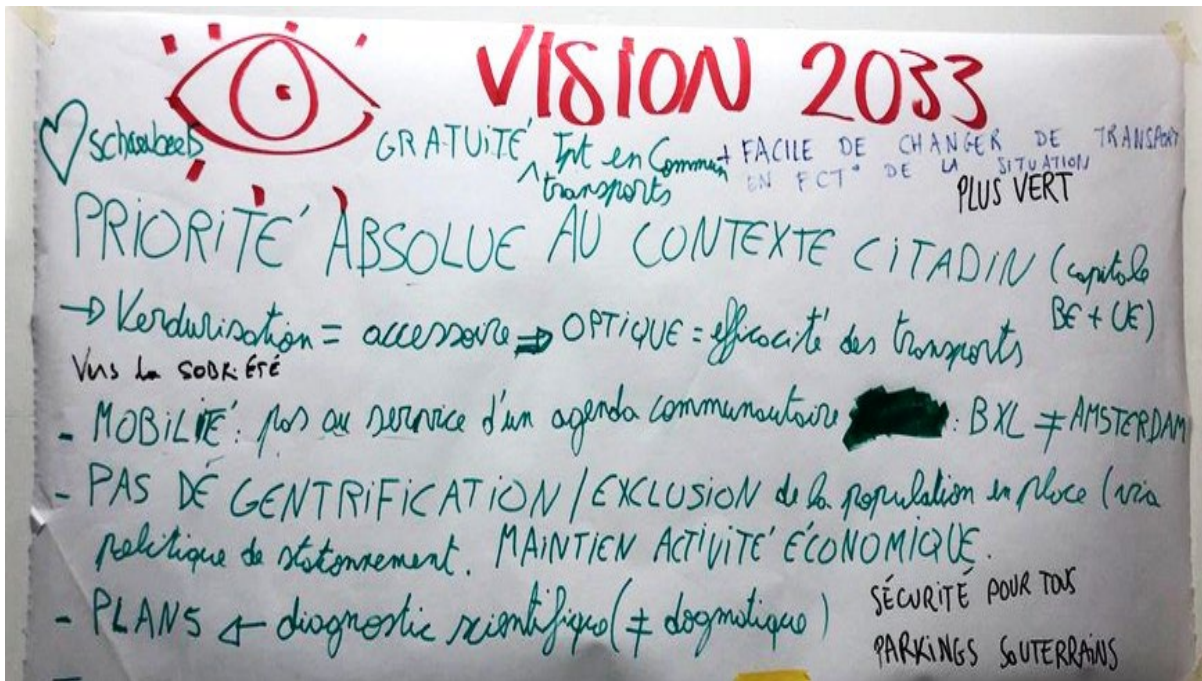 VISION 2033
♡ Schaerbeek
GRATUITÉ Tpt en Commun
transports
+ FACILE DE CHANGER DE TRANSPORT
EN FCT° DE LA SITUATION
PLUS VERT
PRIORITÉ ABSOLUE AU CONTEXTE CITADIN (capitale
BE + UE)
→ Verdurisation = accessoire ⇒ OPTIQUE = efficacité des transports
Vers la SOBRIÉTÉ
- MOBILITÉ : pas au service d'un agenda communautaire : BXL ≠ AMSTERDAM
- PAS DE GENTRIFICATION / EXCLUSION de la population en place (via
politique de stationnement. MAINTIEN ACTIVITÉ ÉCONOMIQUE.
- PLANS ← diagnostic scientifique (≠ dogmatique)
SÉCURITÉ POUR TOUS
PARKINGS SOUTERRAINS